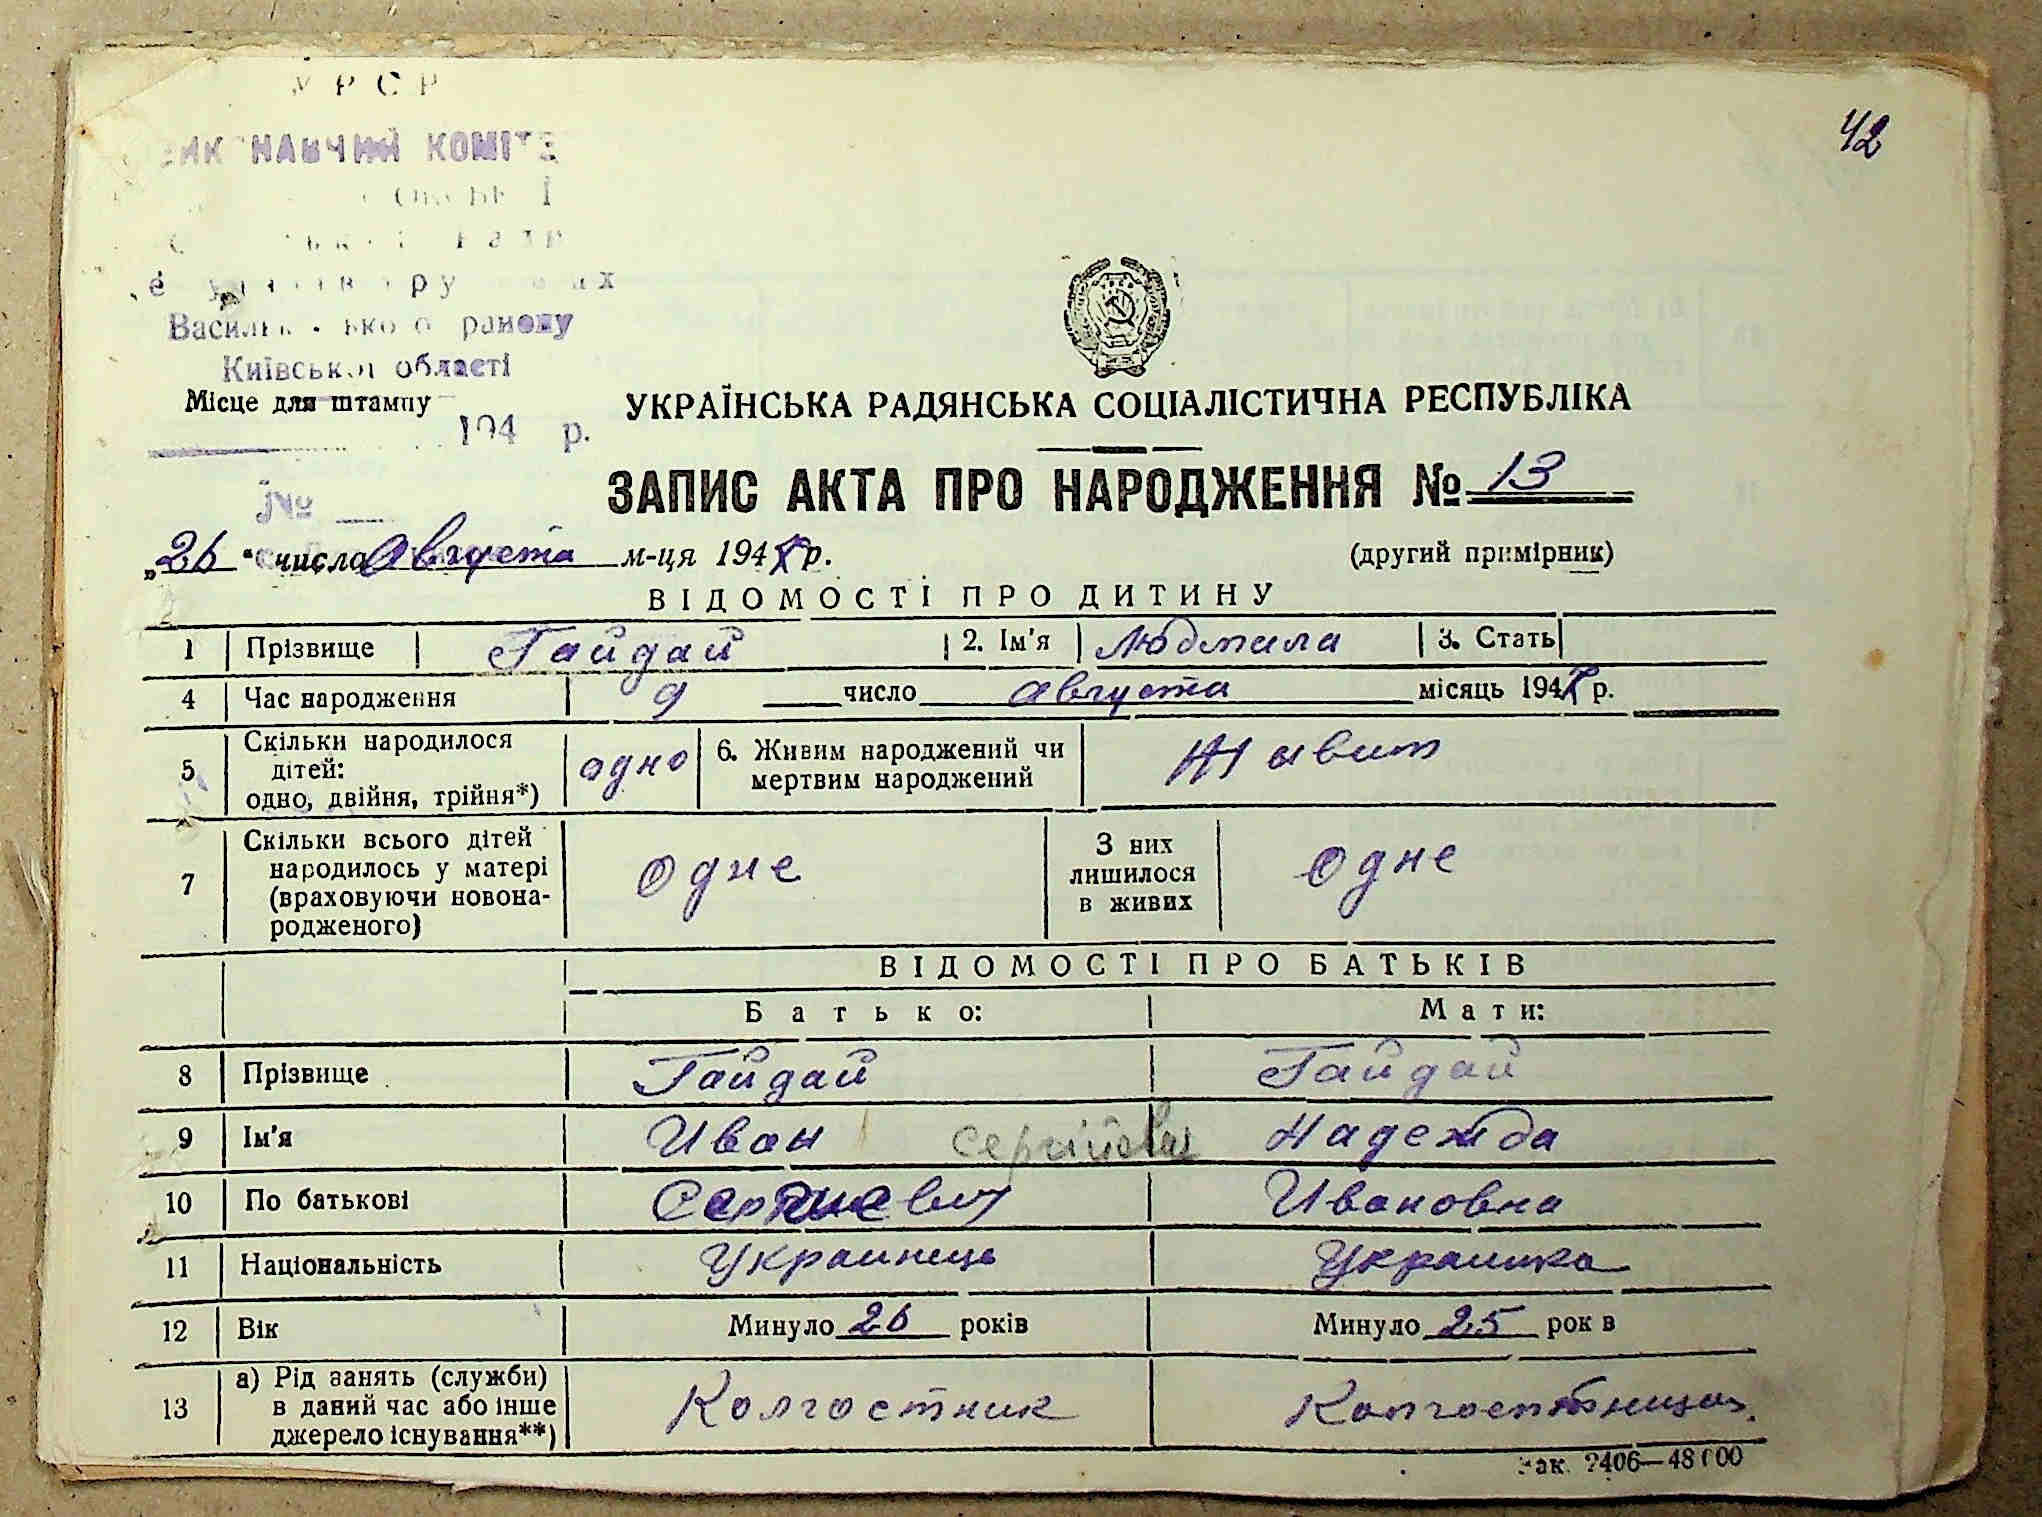 У Р С Р
42
ВИКОНАВЧИЙ КОМІТЕ
Васильківського району
Київської області
Місце для штампу
194 р.
УКРАЇНСЬКА РАДЯНСЬКА СОЦІАЛІСТИЧНА РЕСПУБЛІКА
ЗАПИС АКТА ПРО НАРОДЖЕННЯ № 13
№
„26" число Августа м-ця 194 р.
(другий примірник)
ВІДОМОСТІ ПРО ДИТИНУ
1 Прізвище Гайдай 2. Ім'я Людмила 3. Стать
4 Час народження 9 число августа місяць 194 р.
5 Скільки народилося дітей: одно, двійня, трійня*) одно 6. Живим народжений чи мертвим народжений Живим
7 Скільки всього дітей народилось у матері (враховуючи новонародженого) Одне З них лишилося в живих Одне
ВІДОМОСТІ ПРО БАТЬКІВ
Батько: Мати:
8 Прізвище Гайдай Гайдай
9 Ім'я Иван Сергійович Надежда
10 По батькові Сергиевич Ивановна
11 Національність Украинець Украинка
12 Вік Минуло 26 років Минуло 25 років
13 а) Рід занять (служби) в даний час або інше джерело існування**) Колгостник Колгостница
Зак. 2406—48000